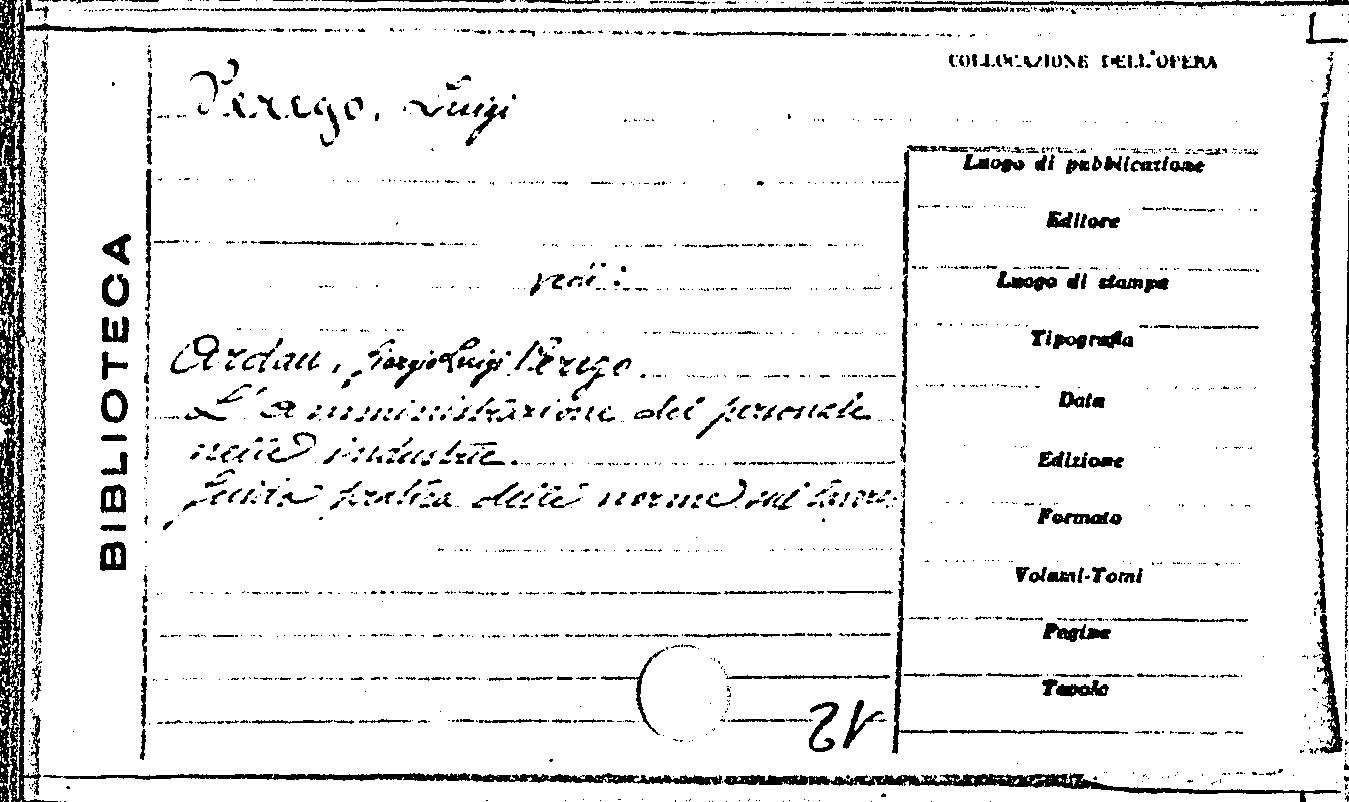 COLLOCAZIONE DELL'OPERA
Perego, Luigi
vedi:
Ardau, Giorgio Luigi Perego.
L'amministrazione del personale
nelle industrie.
Guida pratica delle norme sul lavoro
BIBLIOTECA
Luogo di pubblicazione
Editore
Luogo di stampa
Tipografia
Data
Edizione
Formato
Volumi-Tomi
Pagine
Tavole